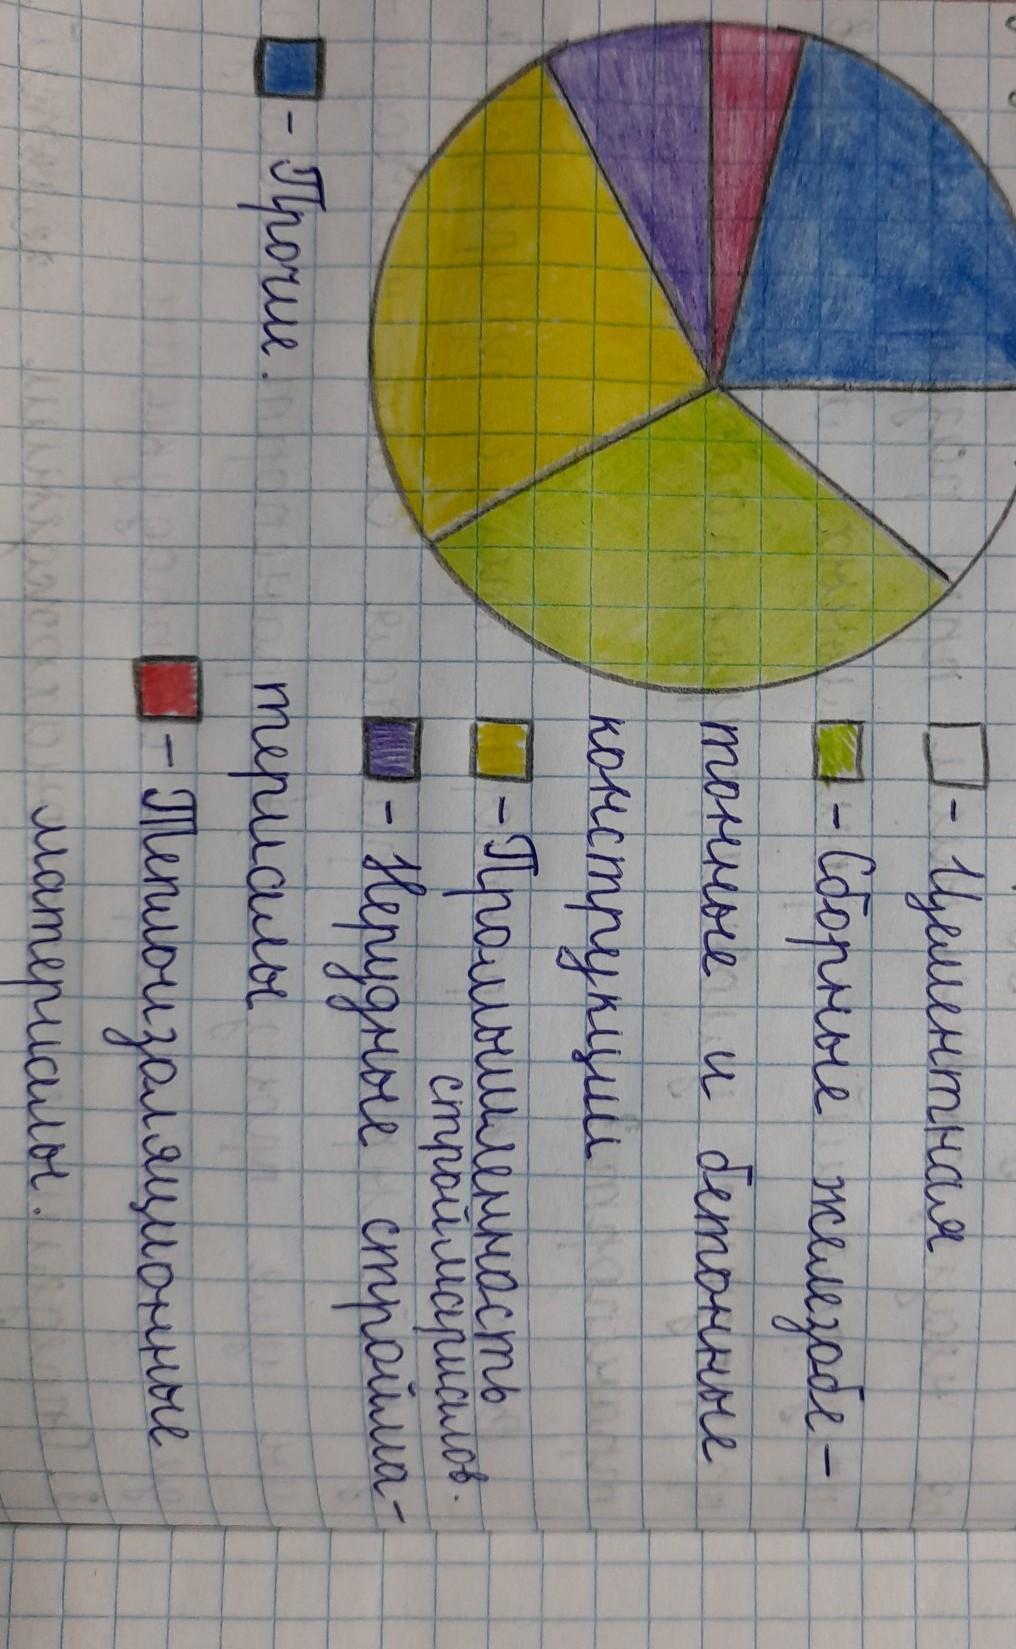 - Цементная
- Сборные железобе-
тонные и бетонные
конструкции
- Промышленность
стройматриалов.
- Нерудные стройма-
териалы
- Теплоизаляционные
материалы.
- Прочие.